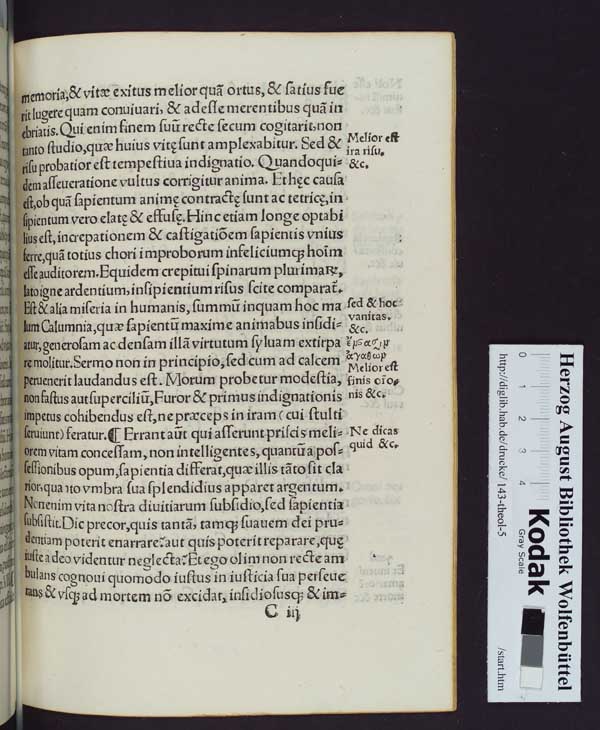 memoria, & vitæ exitus melior quã ortus, & satius fue
rit lugere quam conuiuari, & adesse merentibus quã in
ebriatis. Qui enim finem suũ recte secum cogitarit, non
tanto studio, quæ huius vitę sunt amplexabitur. Sed &
risu probatior est tempestiua indignatio. Quandoqui-
dem asseueratione vultus corrigitur anima. Et hęc causa
est, ob quã sapientum animę contractę sunt ac tetricę, in
sipientum vero elatę & effusę. Hinc etiam longe optabi
lius est, increpationem & castigatiõem sapientis vnius
ferre, quã totius chori improborum infeliciumqꝫ hoĩm
esse auditorem. Equidem crepitui spinarum plurimaꝝ,
lato igne ardentium, insipientium risus scite comparat̃.
Est & alia miseria in humanis, summũ inquam hoc ma
lum Calumnia, quæ sapientũ maxime animabus insidi-
atur, generosam ac densam illã virtutum syluam extirpa
re molitur. Sermo non in principio, sed cum ad calcem
peruenerit laudandus est. Morum probetur modestia,
non fastus aut supercilium, Furor & primus indignationis
impetus cohibendus est, ne præceps in iram (cui stulti
seruiunt) feratur. ¶ Errant aũt qui asserunt priscis meli-
orem vitam concessam, non intelligentes, quantũ a pos-
sessionibus opum, sapientia differat, quæ illis tãto sit cla
rior, quãto vmbra sua splendidius apparet argentum.
Non enim vita nostra diuitiarum subsidio, sed sapientia
subsistit. Dic precor, quis tantã, tamqꝫ suauem dei pru-
dentiam poterit enarrare? aut quis poterit reparare, quę
iuste a deo videntur neglecta? Et ego olim non recte am
bulans cognoui quomodo iustus in iusticia sua perseue
rans & vsqꝫ ad mortem nõ excidat, insidiosusqꝫ & im-
C iij
Melior est
ira risu.
&c.
sed & hoc
vanitas.
&c.
ἀγαθωρ
Melior est
finis
nis &c.
Ne dicas
quid &c.
Herzog August Bibliothek Wolfenbüttel
http://diglib.hab.de/drucke/143-theol-5
/start.htm
0 1 2 3 4
Kodak
Gray Scale